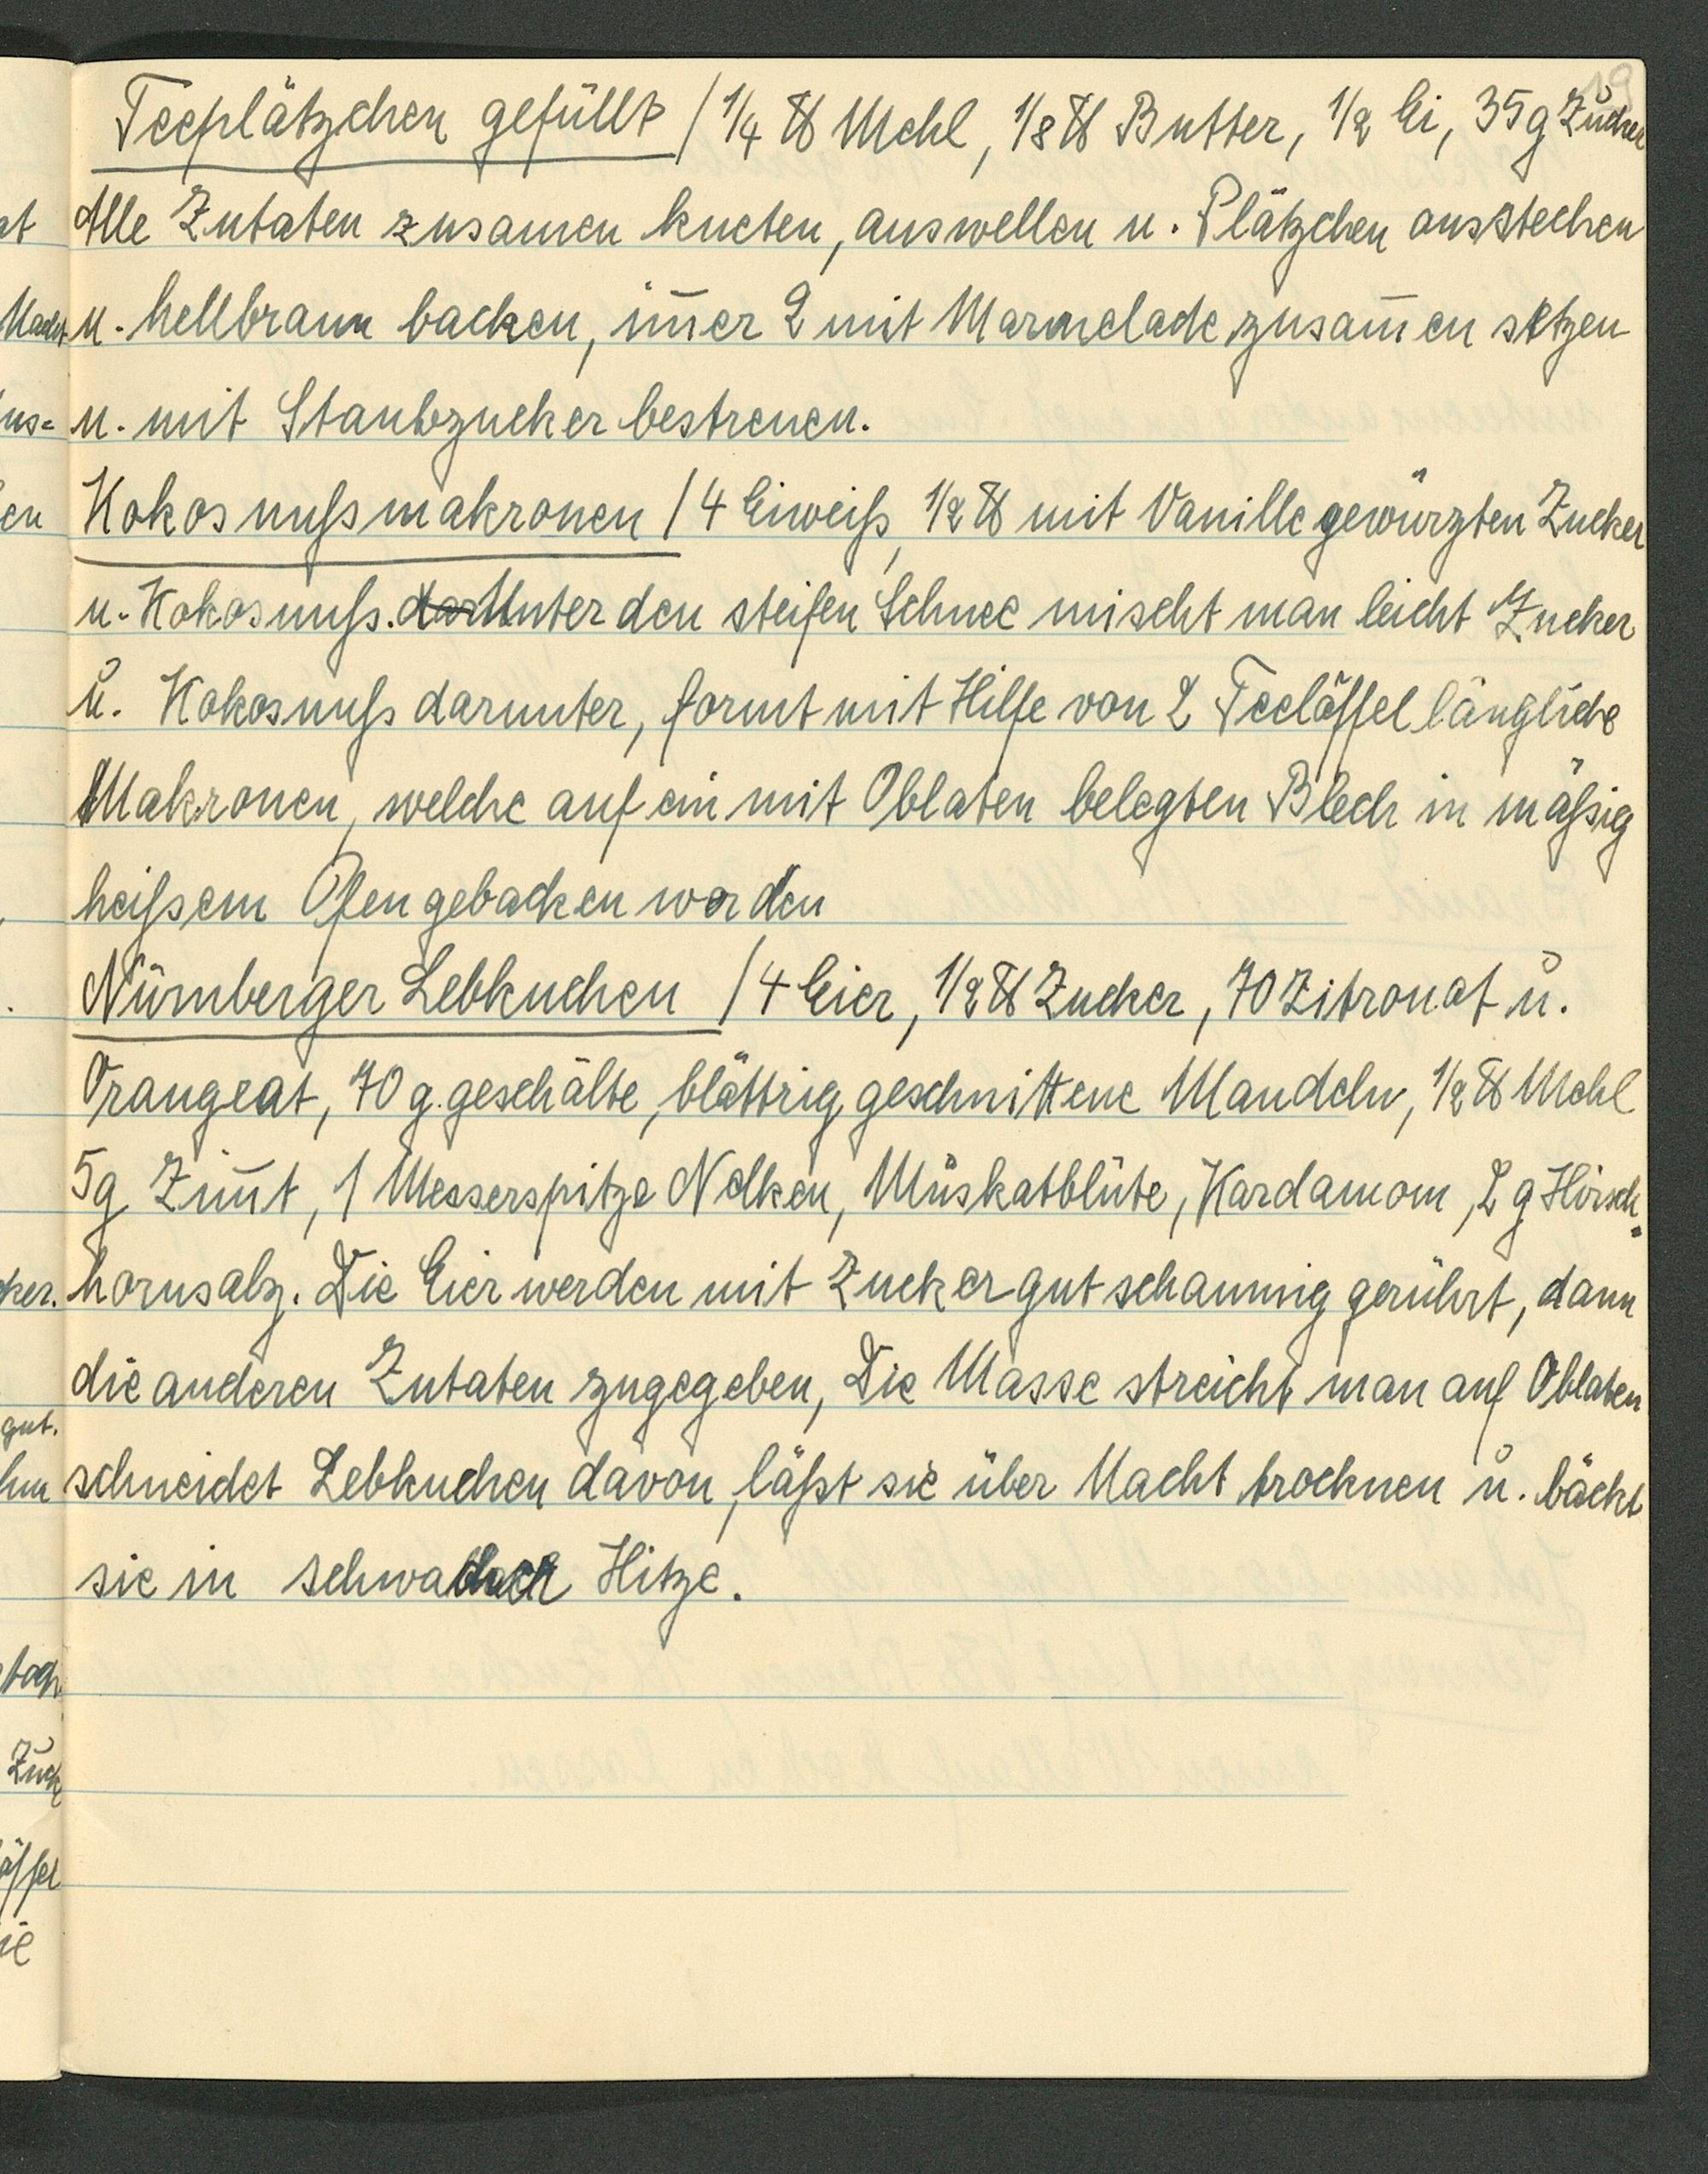 19
Teeplätzchen gefüllt / 1/4 ℔ Mehl, 1/8 ℔ Butter, 1/2 Ei, 35g Zucker
Alle Zutaten zusamen kneten, auswellen u. Plätzchen ausstechen
u. hellbraun backen, im̅er 2 mit Marmelade zusam̅en setzen
u. mit Staubzucker bestreuen.
Kokosnußmakronen / 4 Eiweiß, 1/2 ℔ mit Vanille gewürzten Zucker
u. Kokosnuß. Unter den steifen Schnee mischt man leicht Zucker
u. Kokosnuß darunter, formt mit Hilfe von 2 Teelöffel längliche
Makronen, welche auf ein mit Oblaten belegten Blech in mäßig
heißem Ofen gebacken werden
Nürnberger Lebkuchen / 4 Eier, 1/2 ℔ Zucker, 70 Zitronat u.
Orangeat, 70 g. geschälte, blättrig geschnittene Mandeln, 1/2 ℔ Mehl
5g Zim̅t, 1 Messerspitze Nelken, Muskatblüte, Kardamom, 2 g Hirsch=
hornsalz. Die Eier werden mit Zucker gut schaumig gerührt, dann
die anderen Zutaten zugegeben, Die Masse streicht man auf Oblaten
schneidet Lebkuchen davon, läßt sie über Nacht trocknen u. bäckt
sie in schwacher Hitze.